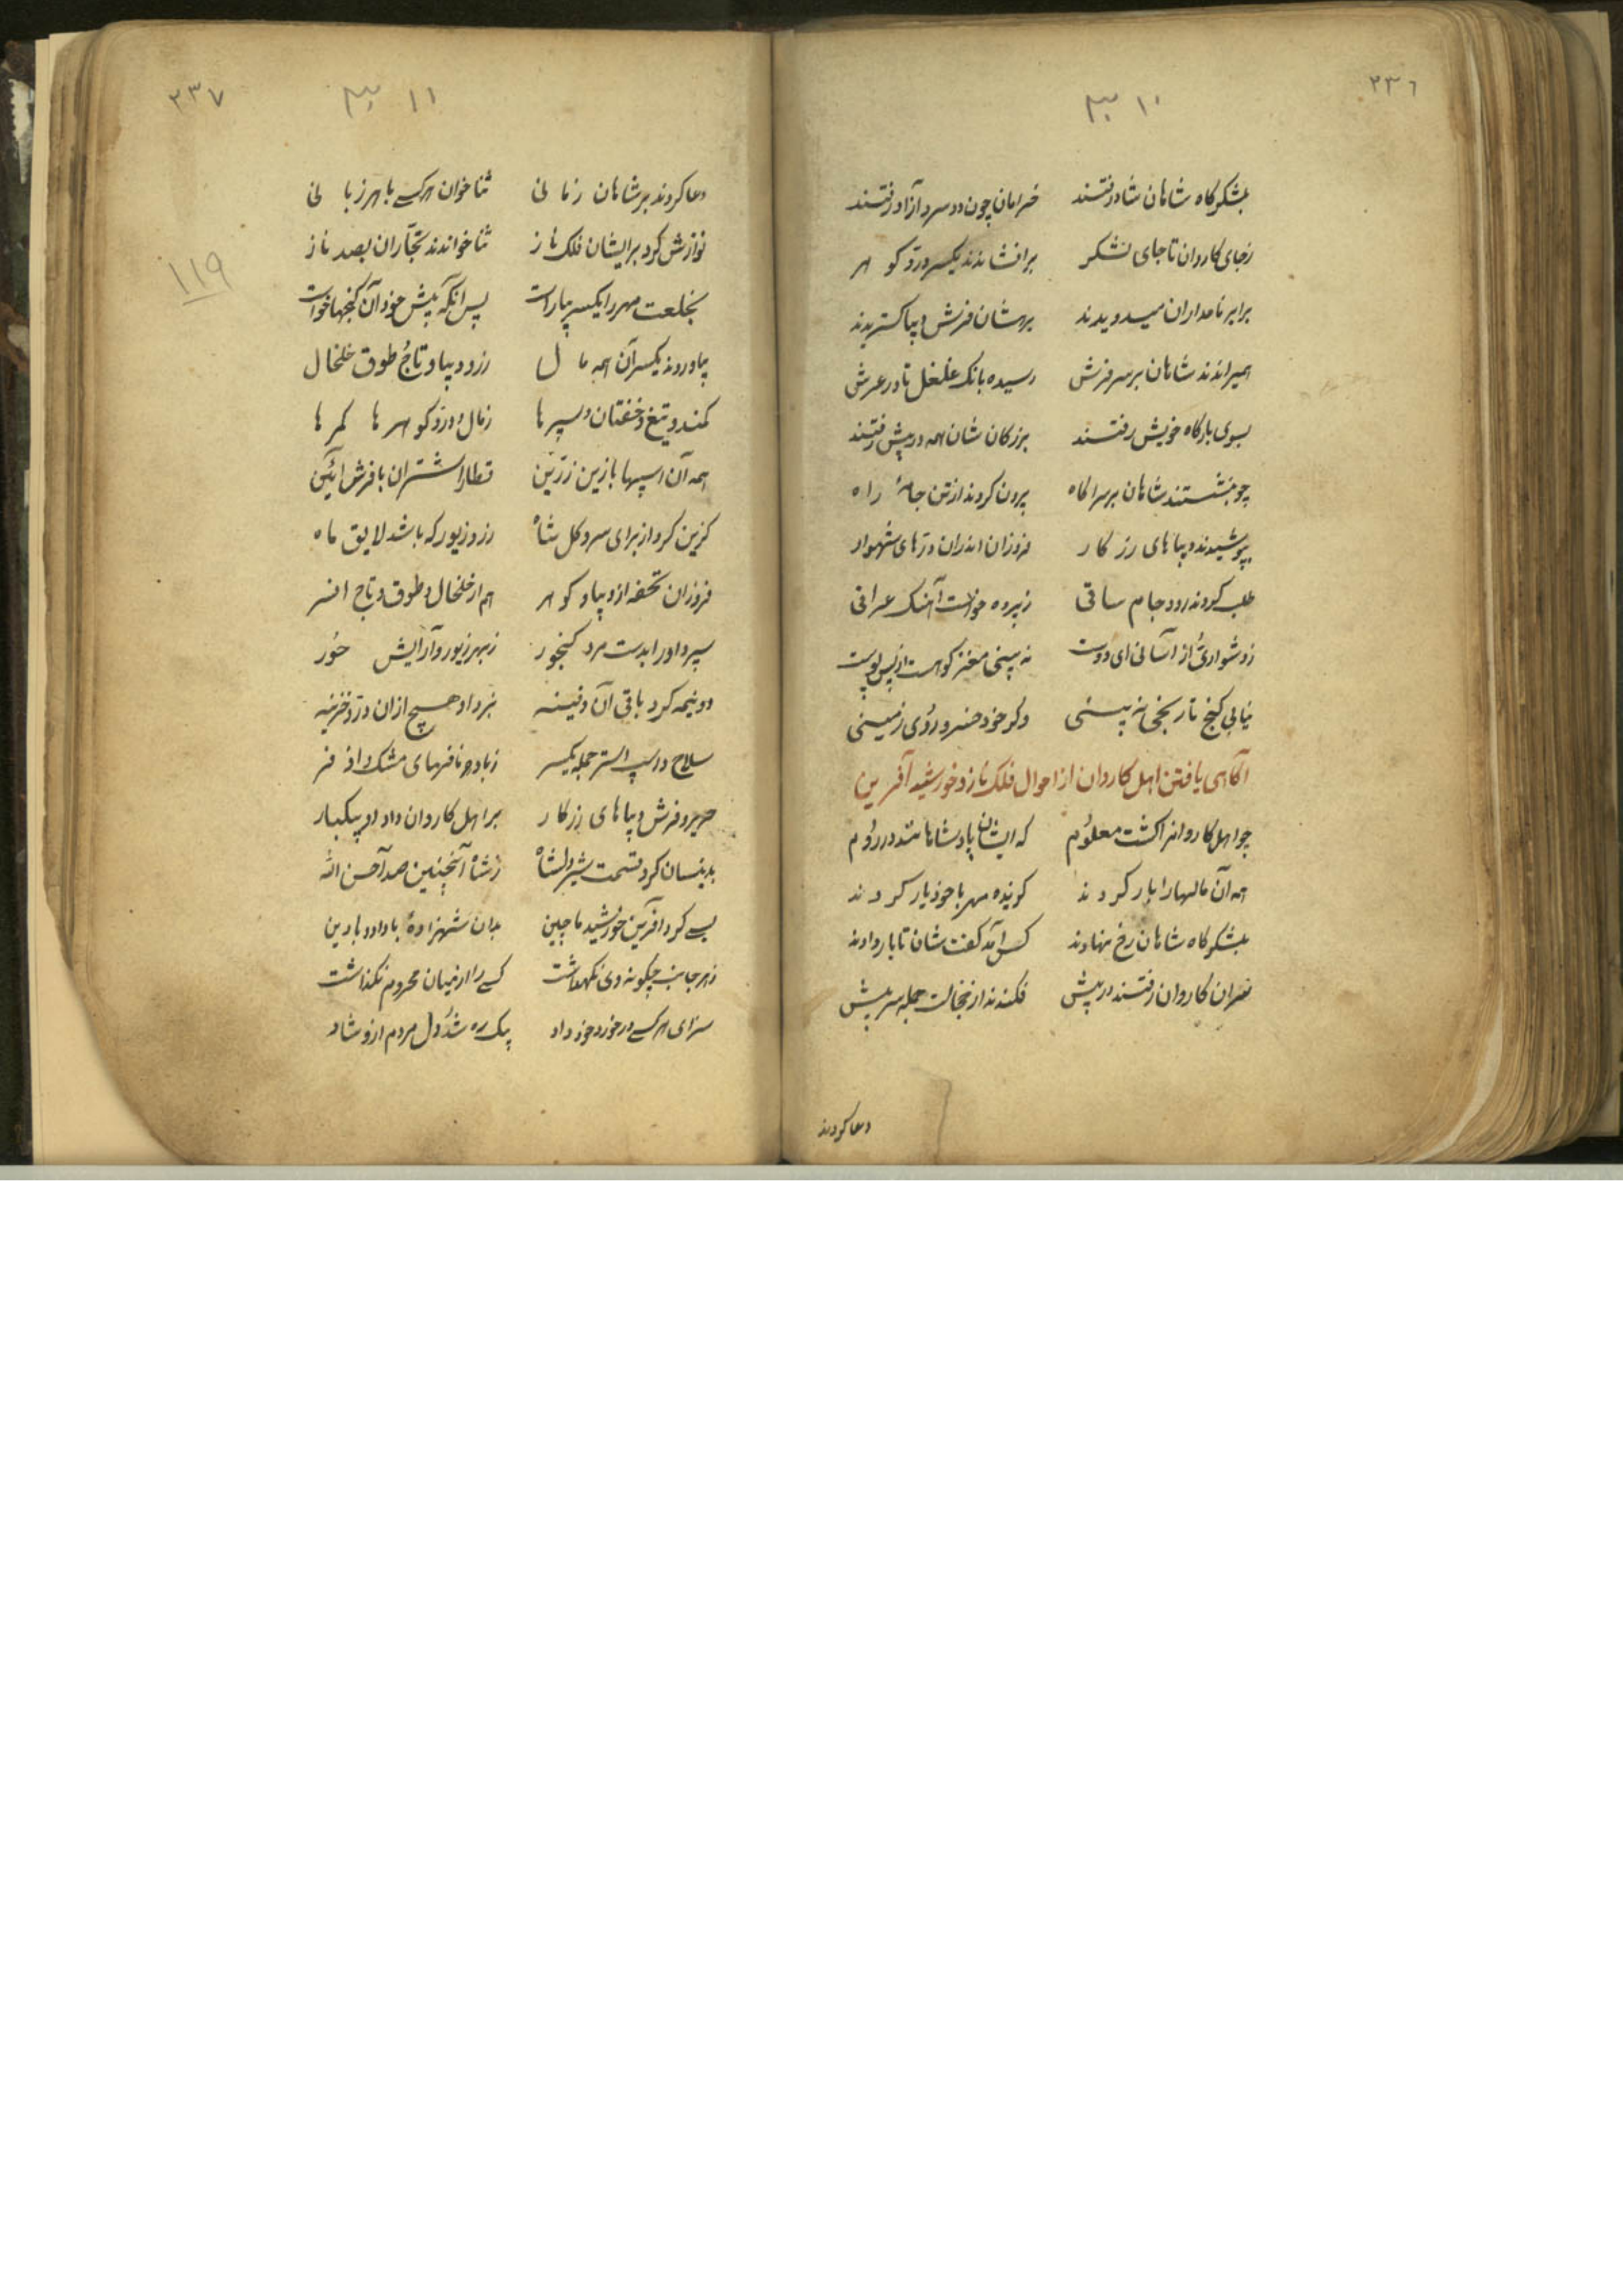 ۲۳٦
۱۰
بلشکرگاه شاهان شاد رفتند خرامان چون دو سرو آزاد رفتند
زجای کاروان تا جای لشکر برافشاندند یکسر در و کوهر
برابر نامداران میدویدند برهشان فرش دیبا کستریدند
همیراندند شاهان بر سر فرش رسیده بانک غلغل تا در عرش
بسوی بارکاه خویش رفتند بزرکان شان همه در پیش رفتند
چو بنشستند شاهان بر سر کاه برون کردند از تن جامهٔ راه
بپوشیدند دیباهای زرکار فروزان اندران درهای شهوار
طلب کردند رود و جام ساقی زپرده خواست آهنک عراقی
زدشواری از آسانی ای دوست نه بینی مغز کو هست از پس پوست
نیابی کنج تا رنجی نه بینی وکر خود خسرو روی زمینی
آکاهی یافتن اهل کاروان از احوال فلک ناز و خورشید آفرین
چو اهل کاروانرا کشت معلوم که ایشان پادشاهانند در روم
همه آن مالهارا بار کردند کزیده مهر با خود یار کردند
بلشکرکاه شاهان رخ نهادند کس آمد کفت شان تا بار دادند
سران کاروان رفتند در پیش فکندند از خجالت جمله سر پیش
دعا کردند
۲۳۷
۱۱
۱۱۹
دعا کردند بر شاهان زمانی ثنا خوان هر کسی با هر زبانی
نوازش کرد بر ایشان فلک ناز ثنا خواندند تجاران بصد ناز
بخلعت مهر را یکسر بیاراست پس انکه پیش خود آن کنجها خواست
بیاوردند یکسر آن همه مال زر و دیبا و تاج و طوق خلخال
کمند و تیغ و خفتان و سپرها زمال و در و کوهرها کمرها
همه آن اسپها با زین زرین قطار اشتران با فرش آئین
کزین کرد از برای سرو کل شاه زر و زیور که باشد لایق ماه
فروزان تحفه از دیبا و کوهر هم از خلخال و طوق و تاج افسر
سپرد او را بدست مرد کنجور زبهر زیور و آرایش حور
دو نیمه کرد باقی آن دفینه نبرد او هیچ ازان در و خزینه
سلاح و اسپ و استر جمله یکسر زباد و نافهای مشک و اذفر
حریر و فرش دیباهای زرکار بر اهل کاروان داد او بیکبار
بدینسان کرد قسمت شیر دل شاه زشاه آنچنین صد آحسن الله
بسی کرد آفرین خورشید ماچین بدان شهزادهٔ با داد و با دین
زهر جانب چکونه وی نکهداشت کسی را از میان محروم نکذاشت
سزای هر کسی در خورد خود داد بیک ره شد دل مردم ازو شاد